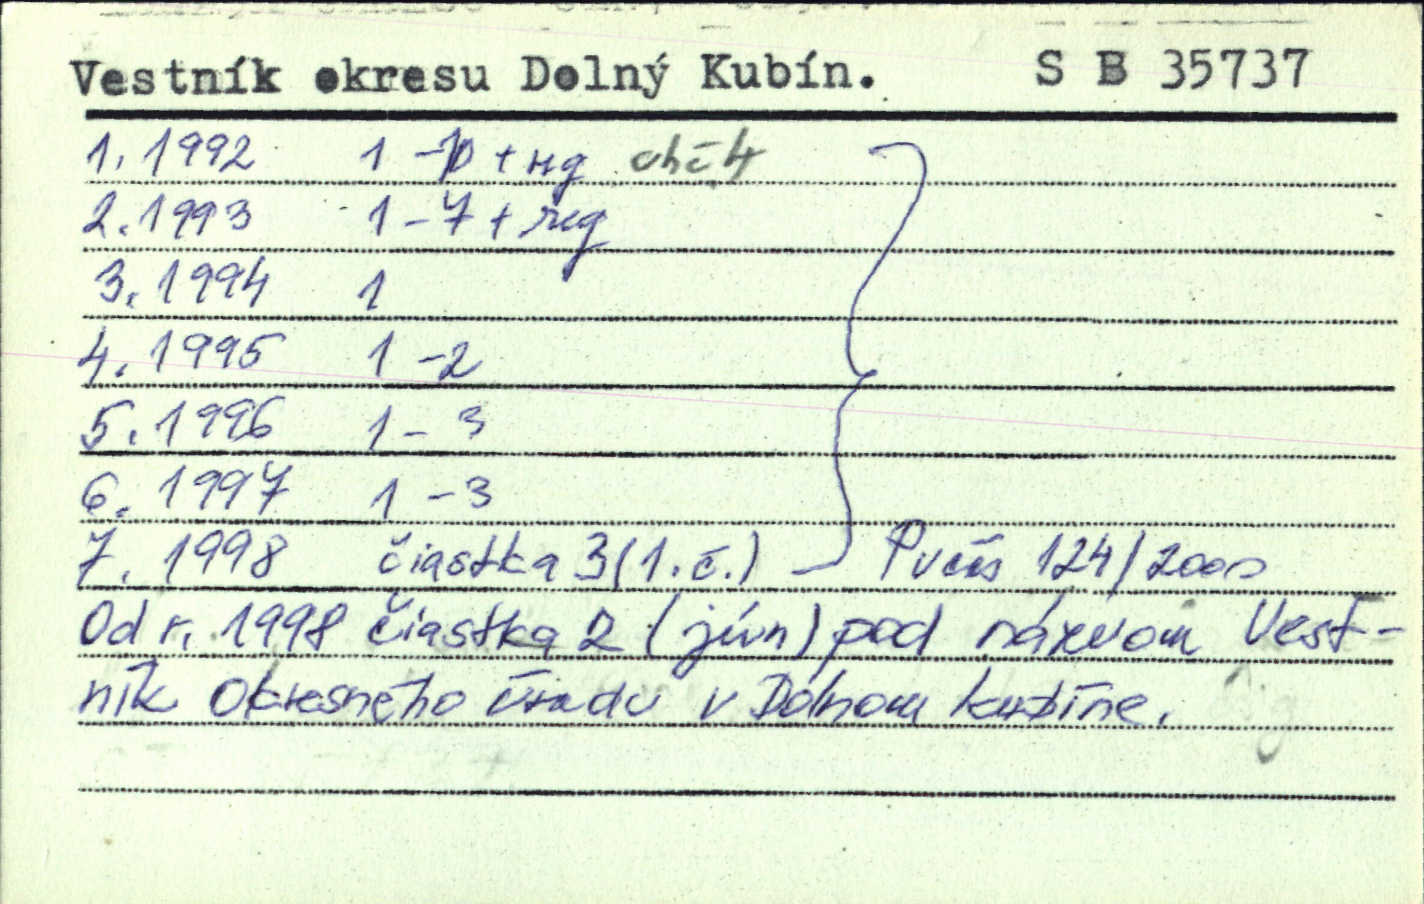 Vestník okresu Dolný Kubín. S B 35737
1. 1992 1 - 10 + reg chč 4
2. 1993 1 - 7 + reg
3. 1994 1
4. 1995 1 - 2
5. 1996 1 - 3
6. 1997 1 - 3
7. 1998 čiastka 3 (1. č.) 124/2000
Od r. 1998 čiastka 2 (jún) pod názvom Vest-
ník Okresného úradu v Dolnom Kubíne.